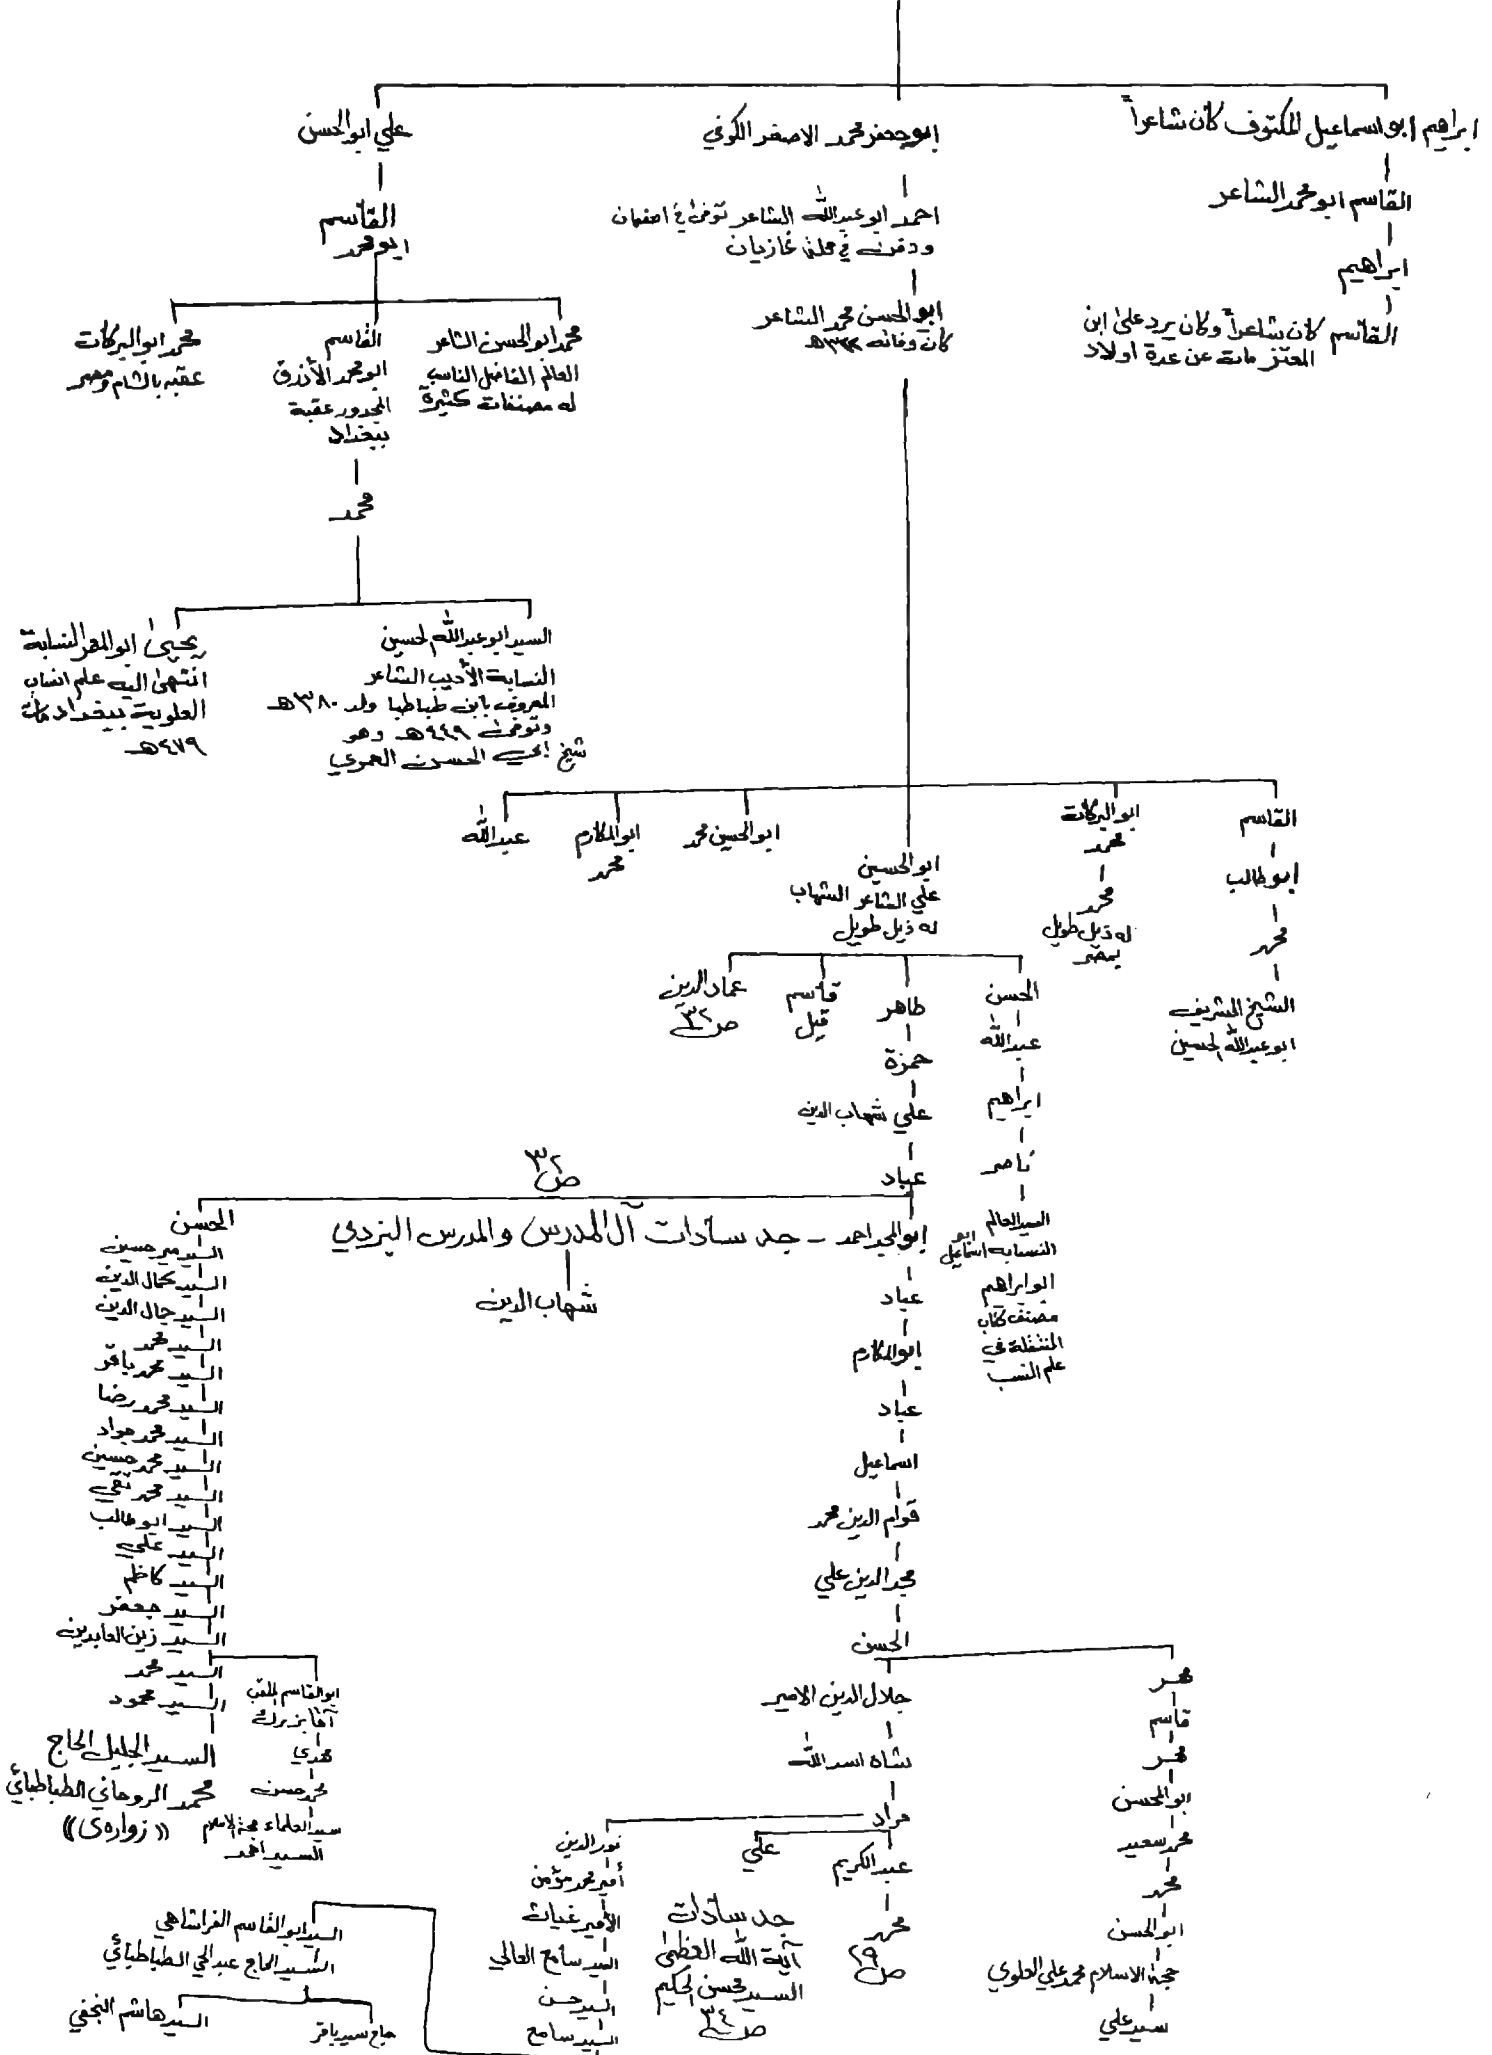 ابراهيم ابو اسماعيل المكتوف كان شاعراً
القاسم ابو محمد الشاعر
ابراهيم
القاسم كان شاعراً وكان يرد على ابن
المعتز مات عن عدة اولاد
ابو جعفر محمد الاصغر الكوفي
احمد ابو عبدالله الشاعر توفى في اصفهان
ودفن في محلة غازيان
ابو الحسن محمد الشاعر
كان وفاته ٣٢٢هـ
علي ابو الحسن
القاسم
ابو محمد
محمد ابو الحسن الشاعر
العالم الفاضل الناسب
له مصنفات كثيرة
القاسم
ابو محمد الأزرق
المجدور عقبة
ببغداد
محمد ابو البركات
عقبه بالشام ومصر
محمد
السيد ابو عبدالله الحسين
النسابة الأديب الشاعر
المعروف بابن طباطبا ولد ٣٨٠هـ
وتوفى ٤٤٩هـ وهو
شيخ ابي الحسن العمري
يحيى ابو المعمر النسابة
انتهى اليه علم انساب
العلوية ببغداد مات
٤٧٩هـ
القاسم
ابو طالب
محمد
الشيخ الشريف
ابو عبدالله الحسين
ابو البركات
محمد
محمد
له ذيل طويل
بمصر
ابو الحسين
علي الشاعر الشهاب
له ذيل طويل
ابو الحسين محمد
ابو المكارم
محمد
عبدالله
الحسن
عبدالله
ابراهيم
ناصر
السيد العالم
النسابه ابو اسماعيل
ابو ابراهيم
مصنف كتاب
المنتقلة في
علم النسب
طاهر
حمزة
علي شهاب الدين
عباد
قاسم
قيل
عماد الدين
ص ٣٢
ص ٣٢
ابو المجد احمد - جد سادات آل المدرس والمدرس اليزدي
شهاب الدين
عباد
ابو المكارم
عباد
اسماعيل
قوام الدين محمد
مجد الدين علي
الحسن
محمد
قاسم
محمد
ابو الحسن
محمد سعيد
محمد
ابو الحسن
حجة الاسلام محمد علي العلوي
سيد علي
جلال الدين الامير
شاه اسدالله
مراد
عبد الكريم
محمد
ص ٢٩
علي
جد سادات
آية الله العظمى
السيد محسن الحكيم
ص ٣٤
نور الدين
أمير محمد مؤمن
الأمير غياث
السيد سامع العالي
السيد حسن
السيد سامع
الحسن
السيد مير حسين
السيد كمال الدين
السيد جمال الدين
السيد محمد
السيد محمد باقر
السيد محمد رضا
السيد محمد جواد
السيد محمد حسين
السيد محمد تقي
السيد ابو طالب
السيد علي
السيد كاظم
السيد جعفر
السيد زين العابدين
السيد محمد
السيد محمود
السيد الجليل الحاج
محمد الروحاني الطباطبائي
«زواره‌ى»
ابو القاسم الملقب
آقا بزرك
مهدي
محمد حسن
سيد العلماء حجة الاسلام
السيد احمد
السيد ابو القاسم الفراشاهي
السيد الحاج عبد الحي الطباطبائي
حاج سيد باقر
السيد هاشم النجفي